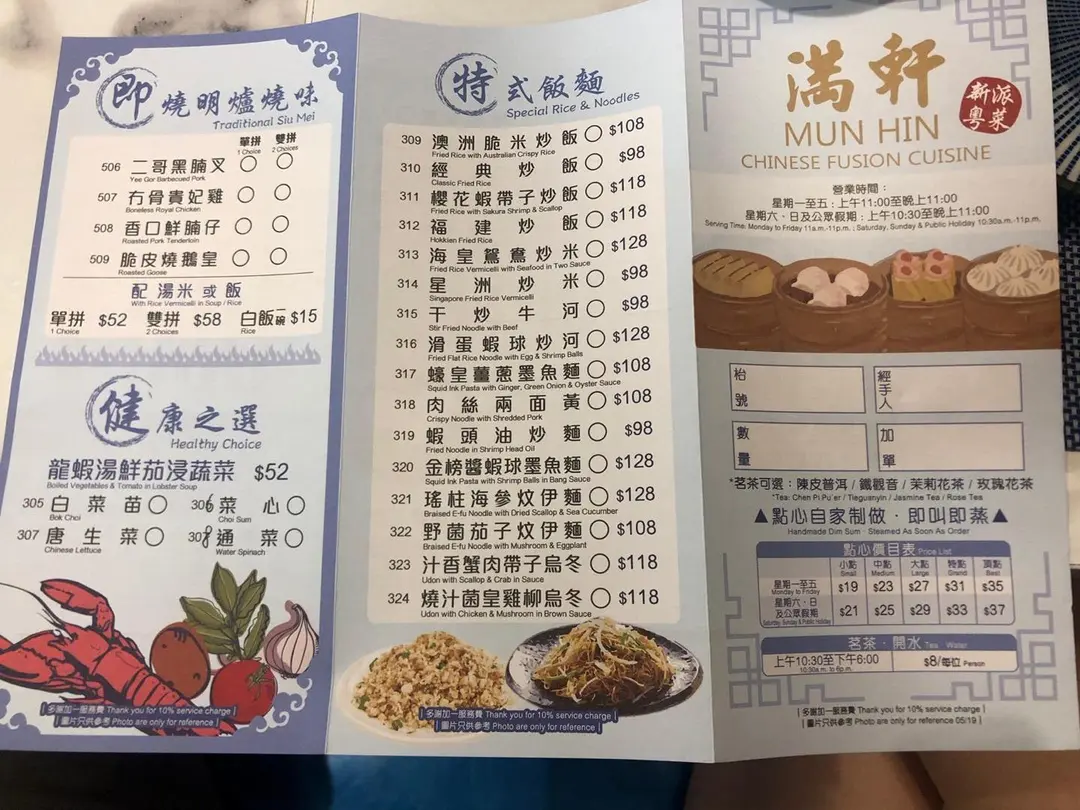 即燒明爐燒味
Traditional Siu Mei
單拼 雙拼
1 Choice 2 Choices
506 二哥黑腩叉
Yee Gor Barbecued Pork
507 冇骨貴妃雞
Boneless Royal Chicken
508 香口鮮腩仔
Roasted Pork Tenderloin
509 脆皮燒鵝皇
Roasted Goose
配湯米或飯
With Rice Vermicelli in Soup / Rice
單拼 $52 雙拼 $58 白飯一碗 $15
1 Choice 2 Choices Rice
健康之選
Healthy Choice
龍蝦湯鮮茄浸蔬菜 $52
Boiled Vegetables & Tomato in Lobster Soup
305 白菜苗 306 菜心
Bok Choi Choi Sum
307 唐生菜 308 通菜
Chinese Lettuce Water Spinach
多謝加一服務費 Thank you for 10% service charge
圖片只供參考 Photo are only for reference
特式飯麵
Special Rice & Noodles
309 澳洲脆米炒飯 $108
Fried Rice with Australian Crispy Rice
310 經典炒飯 $98
Classic Fried Rice
311 櫻花蝦帶子炒飯 $118
Fried Rice with Sakura Shrimp & Scallop
312 福建炒飯 $118
Hokkien Fried Rice
313 海皇鴛鴦炒米 $128
Fried Rice Vermicelli with Seafood in Two Sauce
314 星洲炒米 $98
Singapore Fried Rice Vermicelli
315 干炒牛河 $98
Stir Fried Noodle with Beef
316 滑蛋蝦球炒河 $128
Fried Flat Rice Noodle with Egg & Shrimp Balls
317 蠔皇薑蔥墨魚麵 $108
Squid Ink Pasta with Ginger, Green Onion & Oyster Sauce
318 肉絲兩面黃 $108
Crispy Noodle with Shredded Pork
319 蝦頭油炒麵 $98
Fried Noodle in Shrimp Head Oil
320 金榜醬蝦球墨魚麵 $128
Squid Ink Pasta with Shrimp Balls in Bang Sauce
321 瑤柱海參炆伊麵 $128
Braised E-fu Noodle with Dried Scallop & Sea Cucumber
322 野菌茄子炆伊麵 $108
Braised E-fu Noodle with Mushroom & Eggplant
323 汁香蟹肉帶子烏冬 $118
Udon with Scallop & Crab in Sauce
324 燒汁菌皇雞柳烏冬 $118
Udon with Chicken & Mushroom in Brown Sauce
多謝加一服務費 Thank you for 10% service charge
圖片只供參考 Photo are only for reference
滿軒
新派粵菜
MUN HIN
CHINESE FUSION CUISINE
營業時間：
星期一至五：上午11:00至晚上11:00
星期六、日及公眾假期：上午10:30至晚上11:00
Serving Time: Monday to Friday 11a.m.-11p.m. ; Saturday, Sunday & Public Holiday 10:30a.m.-11p.m.
枱號 經手人
數量 加單
*茗茶可選：陳皮普洱 / 鐵觀音 / 茉莉花茶 / 玫瑰花茶
*Tea: Chen Pi Pu'er / Tieguanyin / Jasmine Tea / Rose Tea
▲點心自家制做．即叫即蒸▲
Handmade Dim Sum · Steamed As Soon As Order
點心價目表 Price List
小點 中點 大點 特點 頂點
Small Medium Large Grand Best
星期一至五 $19 $23 $27 $31 $35
Monday to Friday
星期六、日及公眾假期 $21 $25 $29 $33 $37
Saturday, Sunday & Public Holiday
茗茶．開水 Tea . Water
上午10:30至下午6:00 $8/每位 Person
10:30a.m. to 6p.m.
多謝加一服務費 Thank you for 10% service charge
圖片只供參考 Photo are only for reference 05/19